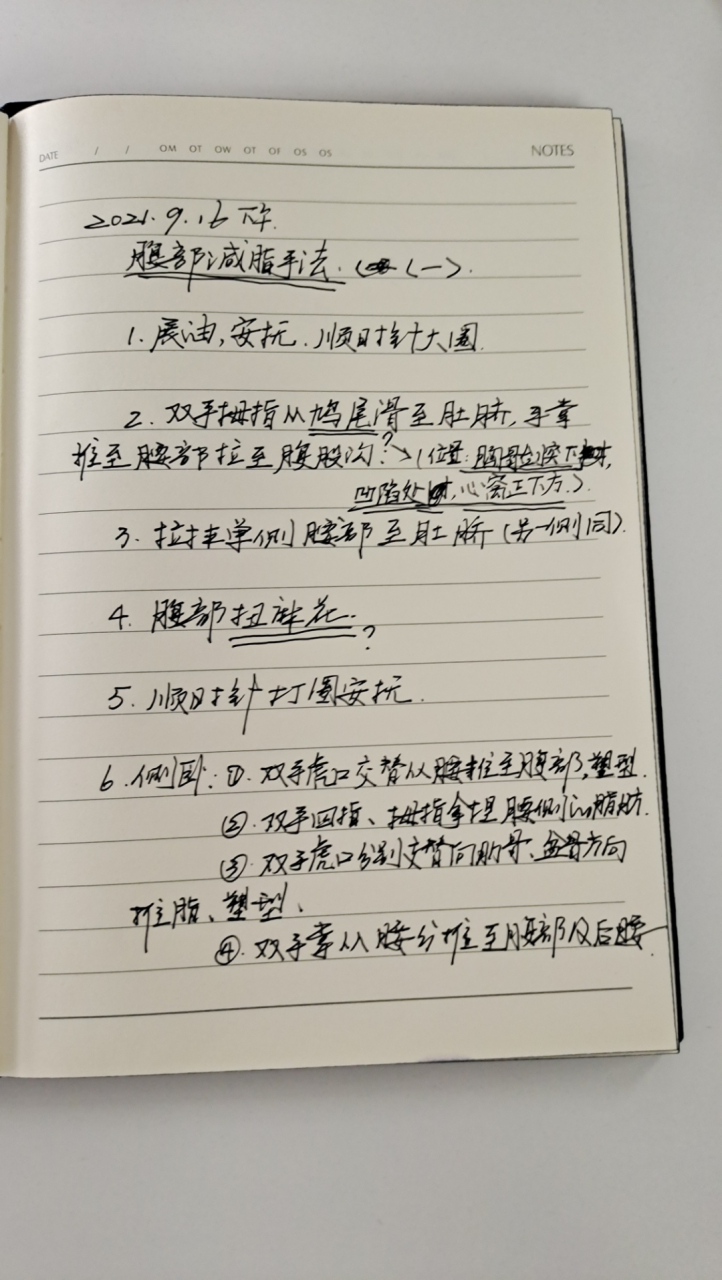 DATE / / OM OT OW OT OF OS OS NOTES
2021.9.16 下午.
腹部减脂手法. (一).
1. 展油,安抚.顺时针大圈
2. 双手拇指从鸠尾滑至肚脐,手掌
推至腰部拉至腹股沟.?→(位置:胸骨剑突下,
凹陷处,心窝正下方.).
3. 拉抹单侧腰部至肚脐(另一侧同).
4. 腹部扭麻花.?
5. 顺时针打圈安抚.
6. 侧卧:①. 双手虎口交替从腰推至腹部,塑型.
②. 双手四指、拇指拿捏腰侧的脂肪.
③. 双手虎口分别交替向肋骨、盆骨方向
推脂、塑型、
④. 双手掌从腰分推至腹部及后腰